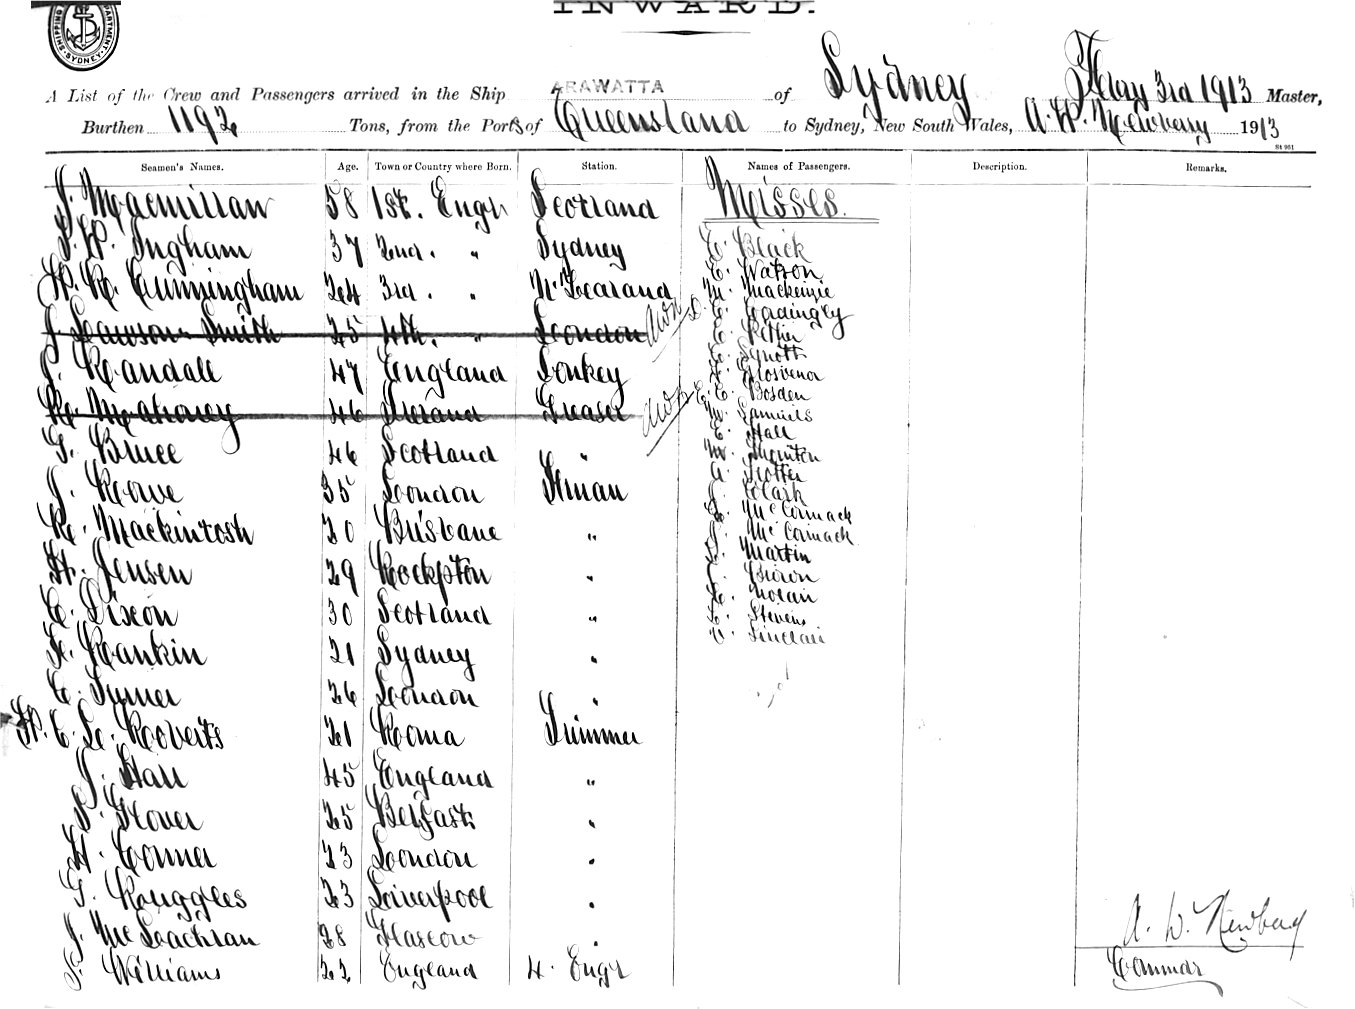 INWARD.
SHIPPING DEPARTMENT. SYDNEY.
A List of the Crew and Passengers arrived in the Ship ARAWATTA of Sydney May 3rd 1913 Master,
Burthen 1192 Tons, from the Ports of Queensland to Sydney, New South Wales, A. W. Newbery 1913
St 961
Seamen's Names. Age. Town or Country where Born. Station. Names of Passengers. Description. Remarks.
Misses.
J. Macmillan 58 1st. Engr Scotland
Ingham 37 2nd. " Sydney
E. Black
H. R. Cunningham 24 3rd. " N' Zealand
E. Watson
M. Mackenzie
J. Lawson Smith 25 4th. " London
E. Cadingley
E. Pether
E. Synott
J. Randall 47 England Donkey
Grosvenor
E. E. Bosden
R. Mahoney 46 Ireland Greaser
M. Samuels
E. Hall
G. Bruce 46 Scotland "
M. Thornton
A. Trotter
J. Rowe 35 London Fireman
J. Clark
McCormack
R. Mackintosh 20 Brisbane "
J. McCormack
Martin
H. Jensen 29 Rockpton "
Nolan
C. Dixon 30 Scotland "
L. Stevens
Sinclair
F. Rankin 21 Sydney "
C. Turner 26 London "
H. C. L. Roberts 21 Roma Trimmer
J. Hall 45 England "
Glover 25 Belfast "
H. Connor 23 London "
G. Ruggles 23 Liverpool "
J. McLachlan 28 Glascow "
A. W. Newbery
J. Williams 22 England 4. Engr
Commdr